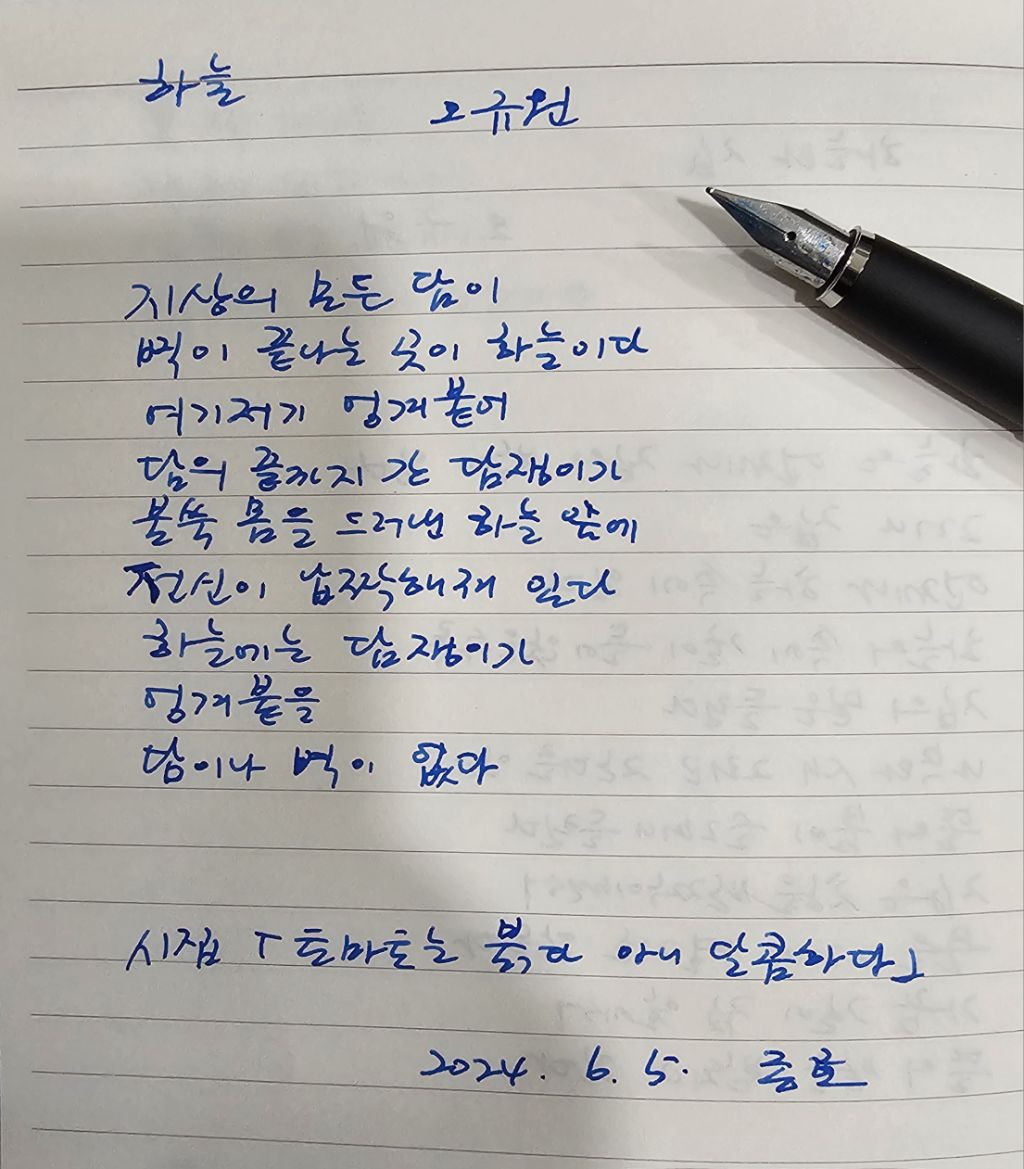 하늘
오규원
지상의 모든 담이
벽이 끝나는 곳이 하늘이다
여기저기 엉겨붙어
담의 끝까지 간 담쟁이가
불쑥 몸을 드러낸 하늘 앞에
전신이 납작해져 있다
하늘에는 담쟁이가
엉겨붙을
담이나 벽이 없다
시집 「토마토는 붉다 아니 달콤하다」
2024. 6. 5.